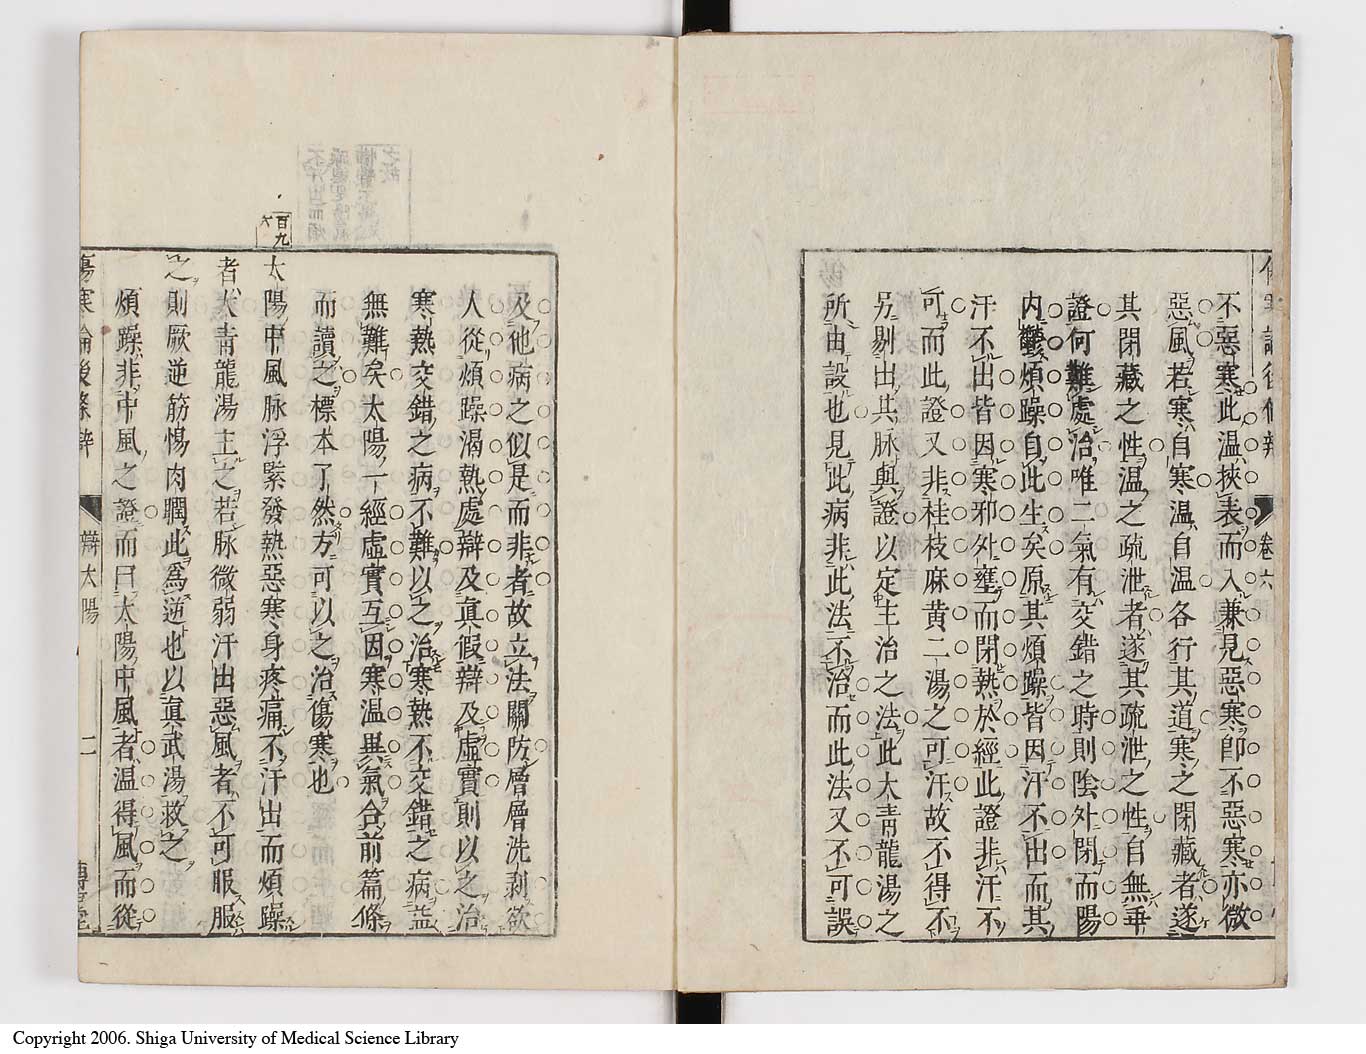 卷六
不惡寒此温挾表而入兼見惡寒卽不惡寒亦微
惡風若寒自寒温自温各行其道寒之閉藏者遂
其閉藏之性温之疏泄者遂其疏泄之性自無乖
證何難處治唯二氣有交錯之時則陰外閉而陽
内鬱煩躁自此生矣原其煩躁皆因汗不出而其
汗不出皆因寒邪外壅而閉熱於經此證非汗不
可而此證又非桂枝麻黄二湯之可汗故不得不
另剔出其脉與證以定主治之法此大青龍湯之
所由設也見此病非此法不治而此法又不可誤
及他病之似是而非者故立法關防層層洗剥欲
人從煩躁渴熱處辯及眞假辯及虛實則以之治
寒熱交錯之病不難以之治寒熱不交錯之病益
無難矣太陽一經虛實互因寒温異氣合前篇條
而讀之標本了然方可以之治傷寒也
百九
六
太陽中風脉浮緊發熱惡寒身疼痛不汗出而煩躁
者大青龍湯主之若脉微弱汗出惡風者不可服服
之則厥逆筋惕肉瞤此爲逆也以眞武湯救之
煩躁非中風之證而曰太陽中風者温得風而從
傷寒論後條辯
辯太陽
二
Copyright 2006. Shiga University of Medical Science Library